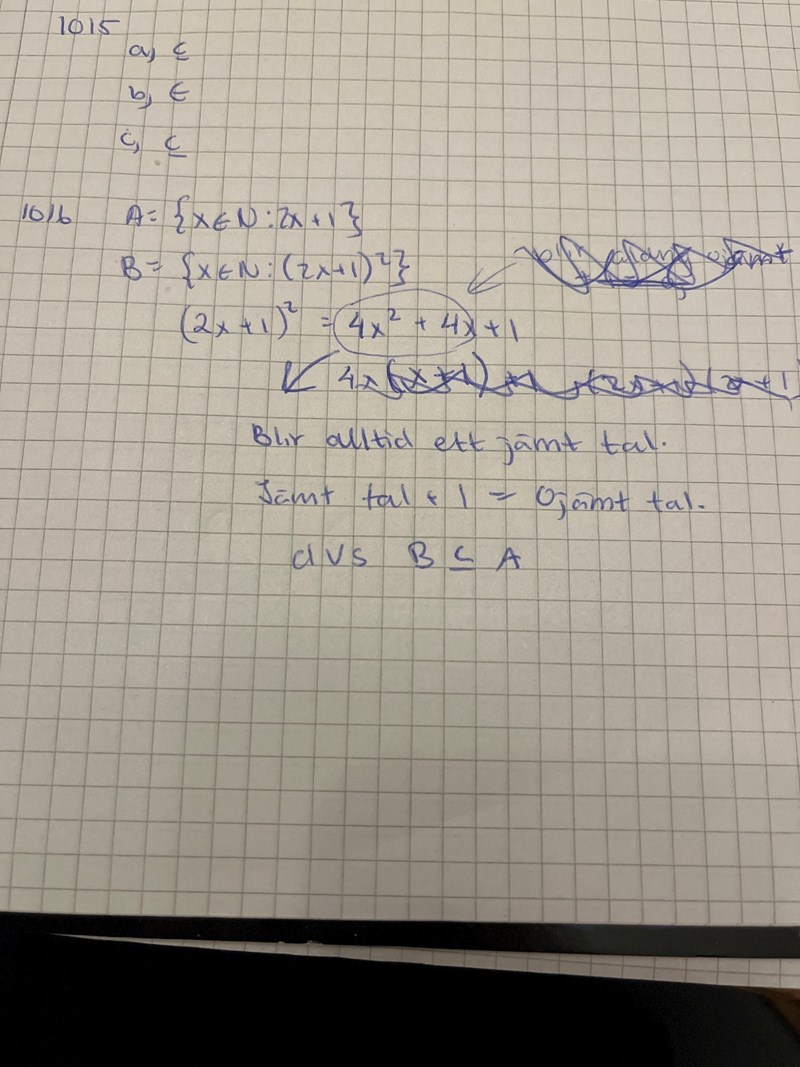 1015
a, ⊆
b, ∈
c, ⊆
1016 A= {x∈N:2x+1}
B= {x∈N:(2x+1)²}
ojämt
(2x+1)² = 4x² + 4x + 1
4x
Blir alltid ett jämt tal.
Jämt tal + 1 = Ojämt tal.
dvs B ⊆ A